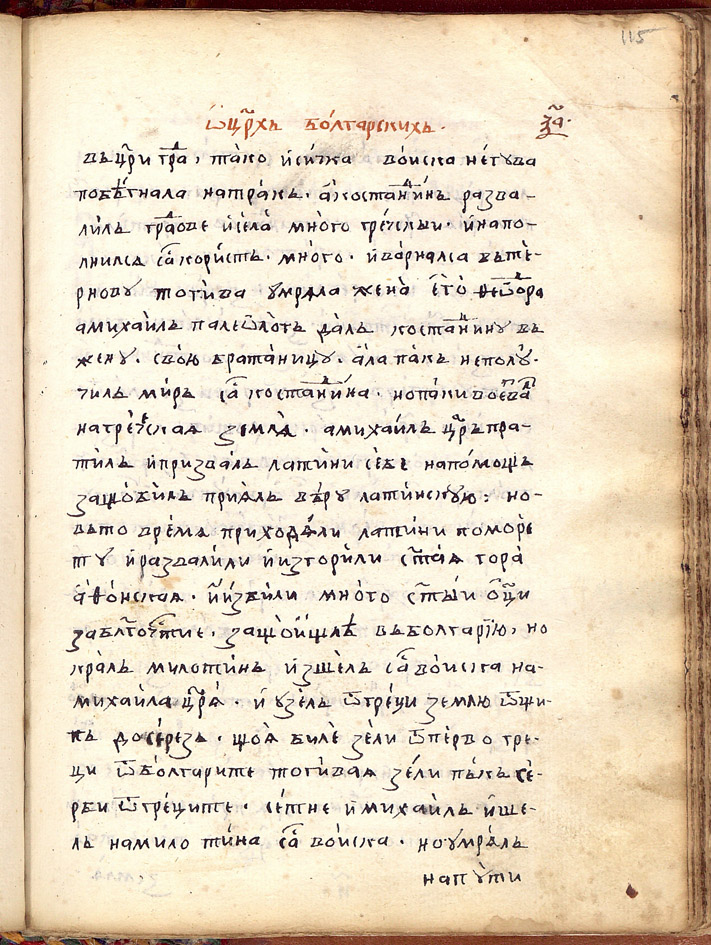 115
ѡ҆ цр҃хъ бо́лгарскихъ· з҃а·
въ цр҃и гра̑, та́ко и҆ си́чка во́иска не́гѹва
побѣ́гнала на тра́къ· а҆ костан̑и́нъ разва-
ли́лъ гра̑ове и҆ се́ла̀ мно́го гре́чкыи· и҆ напо-
лнилсѧ са̑ кори́сть· мно́го· и҆ ва́рналсѧ въ те́-
рнову тоги́ва ѹмрѧ́ла жена̀ є҆го̀ ѳеѡ̑ора
а михаи́лъ палеѡло́гъ да́лъ костан̑и́ну въ
же́ну· сво́ю брата́ницу· а҆́ла па́къ неполѹ́-
чилъ ми́ръ са̑ костан̑и́на· но па́ки воева̑
на гре́ческая землѧ̀· а михаи́лъ цр҃ъ пра-
ти́лъ и҆ призва́лъ лати́ни се́бе на по́мощъ
защо́ би́лъ прїѧ́лъ вѣ́ру лати́нскую: но-
въ то вре́мѧ приходѧ́ли лати́ни по море́
тѹ и҆ развали́ли и҆ изгори́ли ст҃а́ѧ гора̀
а҆ѳо́нская· и҆ и҆зби́ли мно́го ст҃ы́и ѻ҆ц҃и
за бл҃гоче́стие· защо́ и҆ и҆шлѣ̀ въ болгарі́ю, но
кра́лъ милоти́нъ и҆зше́лъ са̑ во́иска на-
михаи́ла цр҃ѧ̀· и҆ ѹзе́лъ ѿ гре́ци зе́млю ѿ щи-
пъ до се́резъ· що́ѧ би́лѐ зе́ли ѿ пе́рво гре-
ци ѿ бо́лгарите тоги́ваѧ зе́ли па́къ се́-
рби ѿ гре́ците· се́тне и҆ михаи́лъ и҆ше-
лъ на милоти́на са̑ во́иска· но ѹмрѧ́лъ
на пѹ́ти